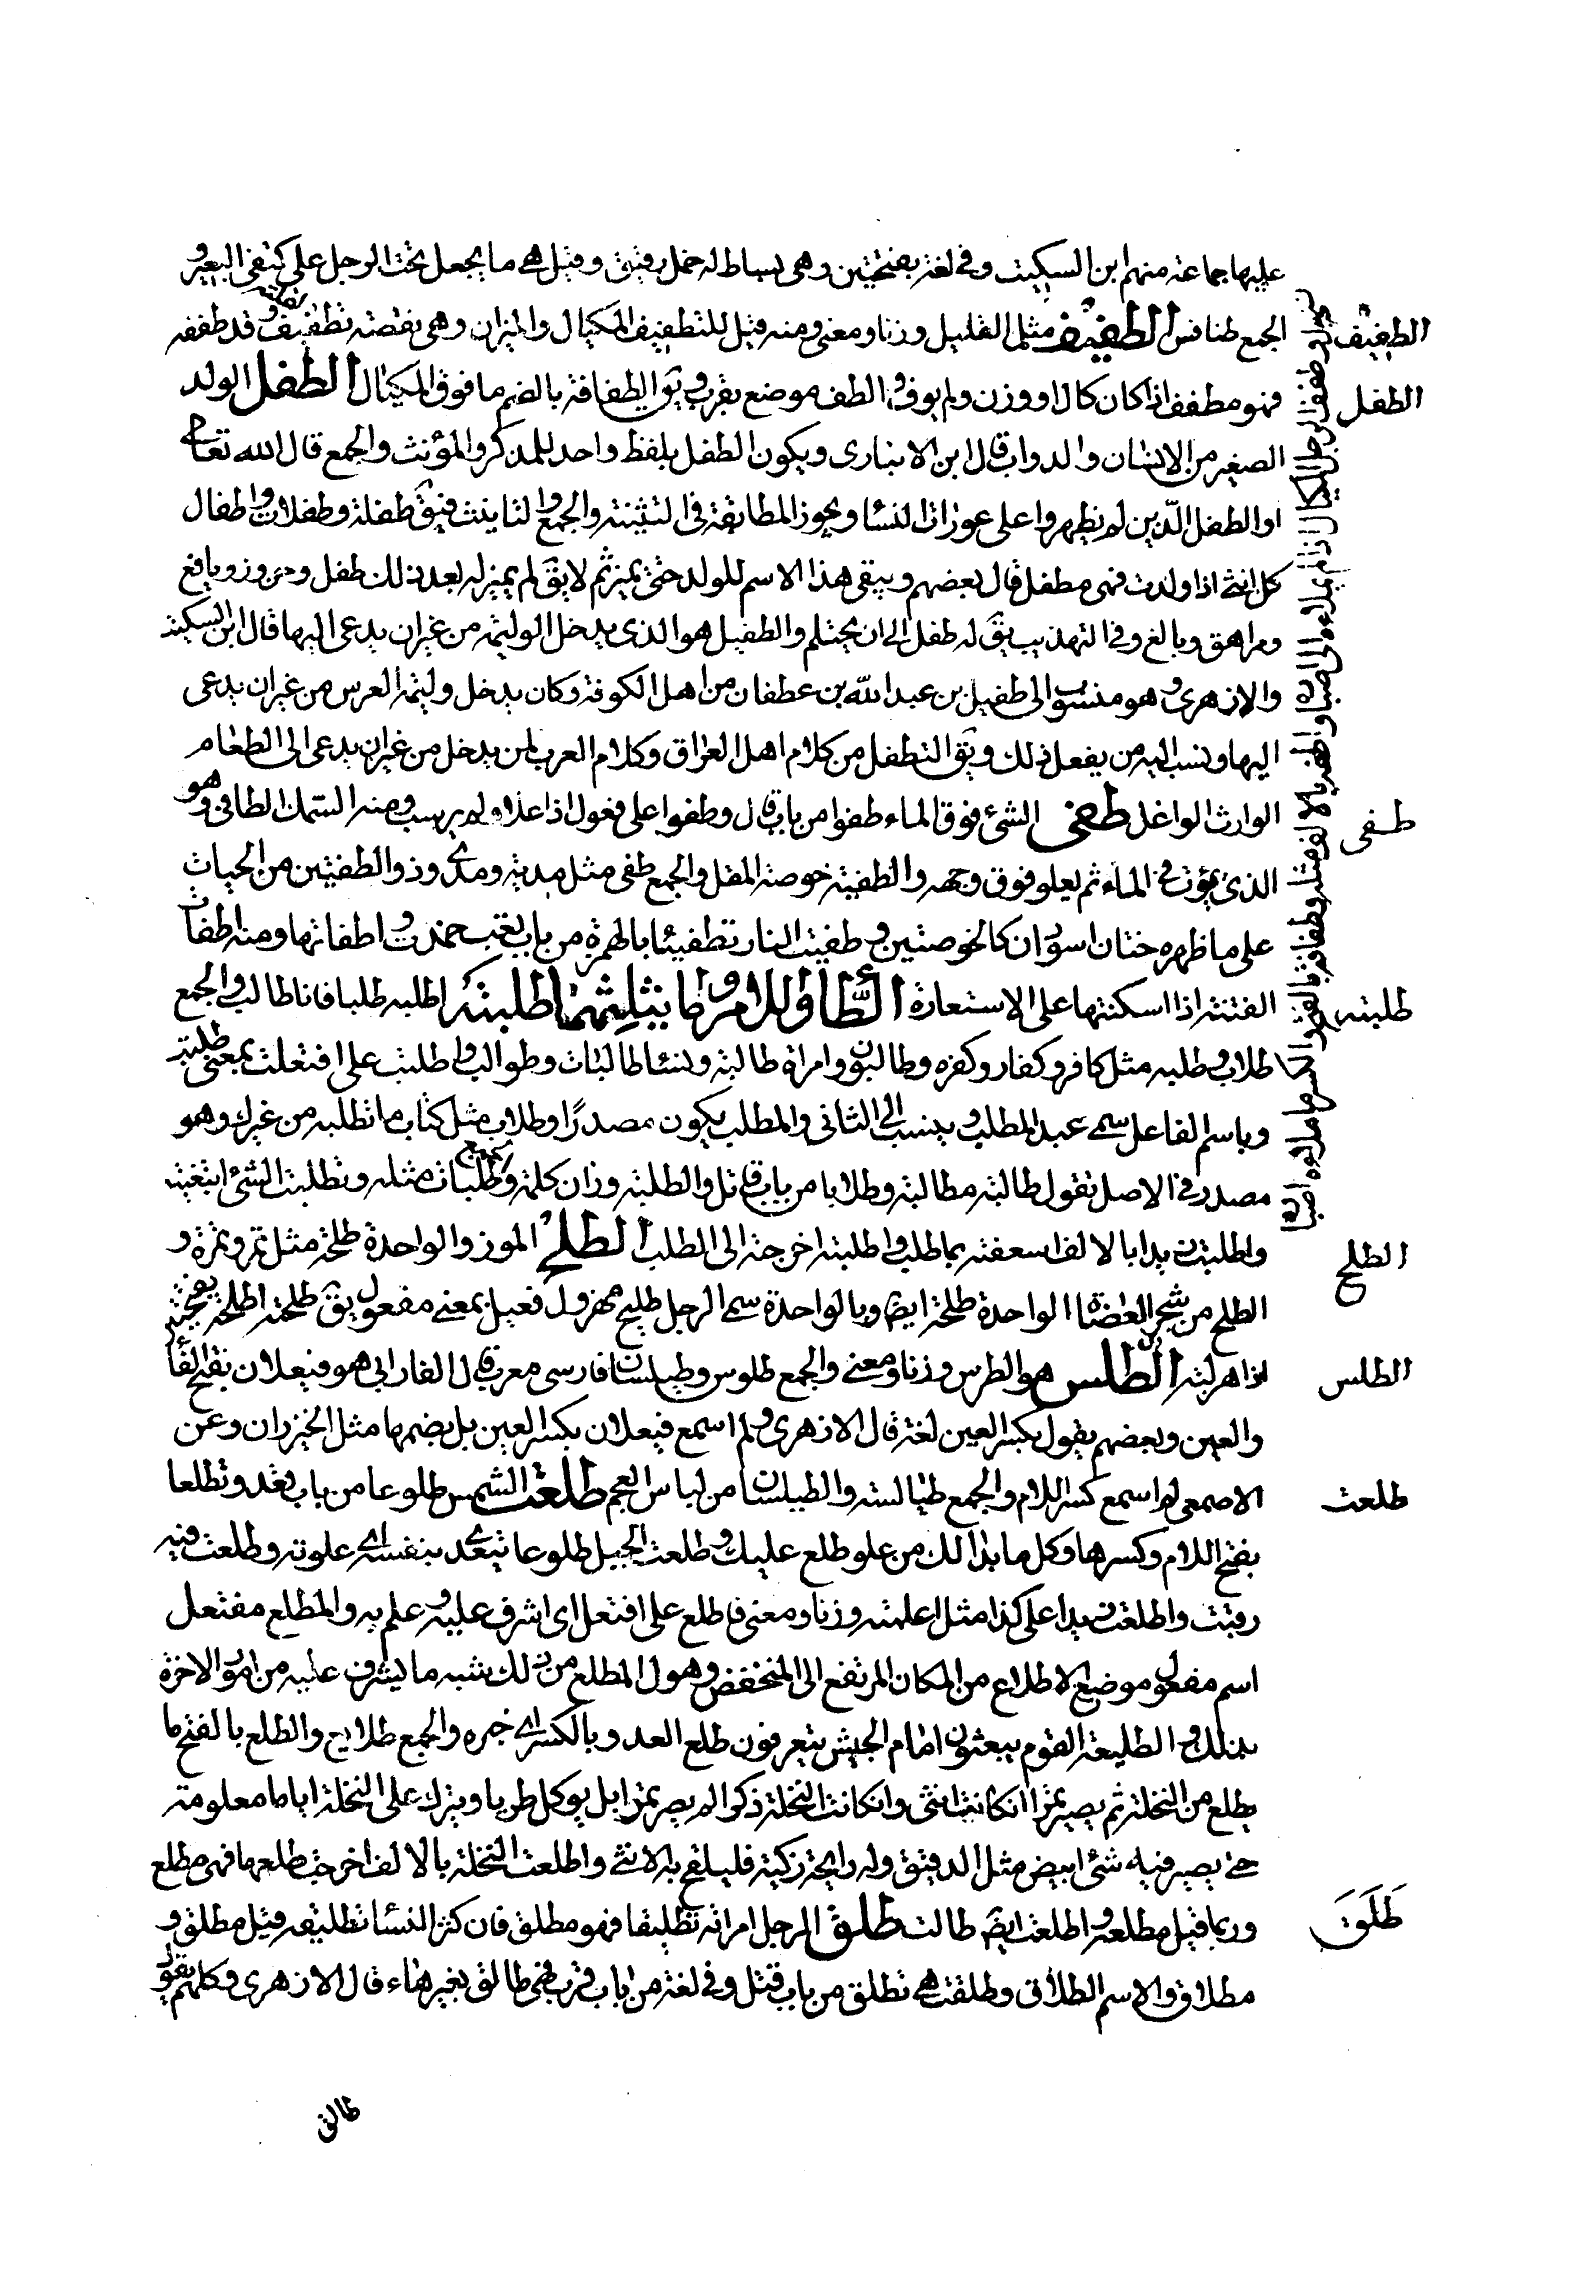 عليها جماعة منهم ابن السكيت وفي لغة بفتحتين وهى بساط له خمل رقيق وقيل هى ما يجعل تحت الرحل على كتفى البعير و
الطفيف
الجمع طنافس الطفيف مثل القليل وزنا ومعنى ومنه قيل للتطفيف المكيال والميزان وهى نقصته تطفيف وقد طففه
الطفل
فهو مطفف اذا كان كال او وزن ولم يوف و الطف موضع بقرب ويق الطفافة بالضم ما فوق المكيال الطفل الولد
الصغير من الانسان والدواب قال ابن الانبارى ويكون الطفل بلفظ واحد للمذكر والمؤنث والجمع قال الله تعالى
اوالطفل الذين لم يظهروا على عورات النساء ويجوز المطابقة فى التثنية والجمع والتانيث فيق طفلة وطفلات واطفال
كل انثى اذا ولدت فهى مطفل قال بعضهم ويبقى هذا الاسم للولد حتى يميز ثم لا يق له بعد ذلك طفل وحزور ويافع
ومراهق وبالغ وفى التهذيب يق له طفل الى ان يحتلم والطفيل هو الذى يدخل الوليمة من غير ان يدعى اليها قال ابن السكيت
والازهرى و هو منسوب الى طفيل بن عبد الله بن غطفان من اهل الكوفة وكان يدخل وليمة العرس من غير ان يدعى
اليها ونسب اليه من يفعل ذلك ويق التطفل من كلام اهل العراق وكلام العرب لمن يدخل من غير ان يدعى الى الطعام
طفى
الوارث الواغل طفى الشئ فوق الماء طفوا من باب قال وطفوا على فعول اذا علا ولم يرسب ومنه السمك الطافى وهو
الذى يموت فى الماء ثم يعلو فوق وجهه والطفية خوصة المقل والجمع طفى مثل مدية ومدى وذو الطفيتين من الحيات
على ما ظهره خطان اسودان كالخوصتين و طفيت النار تطفيئا بالهمزة من باب تعب خمدت واطفاتها ومنه اطفات
طلبته
الفتنة اذا اسكنتها على الاستعارة الطاء واللام وما يثلثهما طلبته اطلبه طلبا فانا طالب والجمع
طلاب و طلبه مثل كافر وكفار وكفره وطالبون وامراة طالبة ونساء طالبات وطوالب واطلبت على افتعلت بمعنى طلبته
وباسم الفاعل سمى عبد المطلب و ينسب الى الثانى والمطلب يكون مصدرا وطلاب مثل كتاب ما تطلبه من غيرك وهو
مصدر فى الاصل تقول طالبته مطالبة وطلابا من باب قاتل والطلبة وزان كلمة وطلبات مثله وتطلبت الشئ ابتغيته
الطلح
واطلبت زيدا بالالف اسعفته بما طلب واطلبته اخرجته الى الطلب الطلح الموز والواحدة طلحة مثل تمر وتمرة و
الطلح من شجر العضاة الواحدة طلحة ايضا وبالواحدة سمى الرجل طليح مهزول فعيل بمعنى مفعول يق طلحته اطلحه بفتحتين
الطلس
اذا هزلته الطلس هو الطرس وزنا ومعنى والجمع طلوس وطيلسان فارسى معرب قال الفارابى هو فيعلان بفتح الفاء
والعين وبعضهم يقول بكسر العين لغة قال الازهرى ولم اسمع فيعلان بكسر العين بل بضمها مثل الخيزران وعن
طلعت
الاصمعى لم اسمع كسر اللام والجمع طيالسة والطيلسان من لباس العجم طلعت الشمس طلوعا من باب قعد وتطلعا
بفتح اللام وكسرها وكل ما بدا لك من علو طلع عليك و طلعت الجبل طلوعا يتعدى بنفسه اى علوته وطلعت فيه
رقيت واطلعت زيدا على كذا مثل اعلمته وزنا ومعنى فاطلع على افتعل اى اشرف عليه و علم به والمطلع مفتعل
اسم مفعول موضع الاطلاع من المكان المرتفع الى المنخفض وهول المطلع من ذلك شبه ما يشرف عليه من امور الاخرة
بذلك و الطليعة القوم يبعثون امام الجيش يتعرفون طلع العدو بالكسر اى خبره والجمع طلايع والطلع بالفتح ما
يطلع من النخلة ثم يصير تمرا ان كانت انثى وان كانت النخلة ذكرا لم يصر تمرا بل يوكل طريا ويترك على النخلة اياما معلومة
حتى يصير فيه شئ ابيض مثل الدقيق وله رايحة زكية فيلقح به الانثى واطلعت النخلة بالالف اخرجت طلعها فهى مطلع
طَلَقَ
وربما قيل مطلعة و اطلعت ايضا طالت طلق الرجل امراته تطليقا فهو مطلق فان كثر النساء تطليقه قيل مطلق و
مطلاق والاسم الطلاق وطلقت هى تطلق من باب قتل وفى لغة من باب قرب فهى طالق بغير هاء قال الازهرى وكلهم يقول
طالق